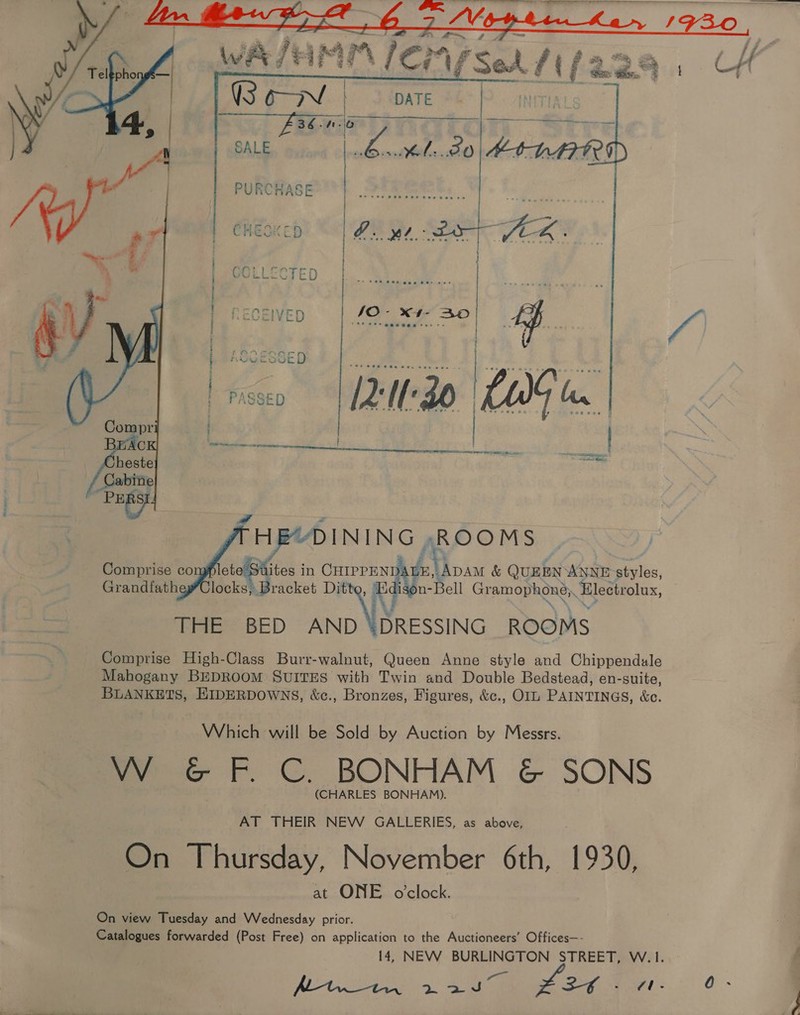 1930
WA/HMM/CM/Sed/1/229
Telephone—
BON DATE INITIALS
14,
£36.11.0
SALE 6.xi.30
PURCHASE
CHECKED
COLLECTED
RECEIVED 10-XI-30
M
ACCESSED
PASSED 12.11.30
Compri
BLACK
Cheste
Cabine
PERSI
THE DINING ROOMS
Comprise complete Suites in CHIPPENDALE, ADAM & QUEEN ANNE styles,
Grandfather Clocks, Bracket Ditto, Edison-Bell Gramophone, Electrolux,
THE BED AND DRESSING ROOMS
Comprise High-Class Burr-walnut, Queen Anne style and Chippendale
Mahogany BEDROOM SUITES with Twin and Double Bedstead, en-suite,
BLANKETS, EIDERDOWNS, &c., Bronzes, Figures, &c., OIL PAINTINGS, &c.
Which will be Sold by Auction by Messrs.
W & F. C. BONHAM & SONS
(CHARLES BONHAM).
AT THEIR NEW GALLERIES, as above,
On Thursday, November 6th, 1930,
at ONE o'clock.
On view Tuesday and Wednesday prior.
Catalogues forwarded (Post Free) on application to the Auctioneers' Offices—-
14, NEW BURLINGTON STREET, W.1.
£36 - 11 - 0 -